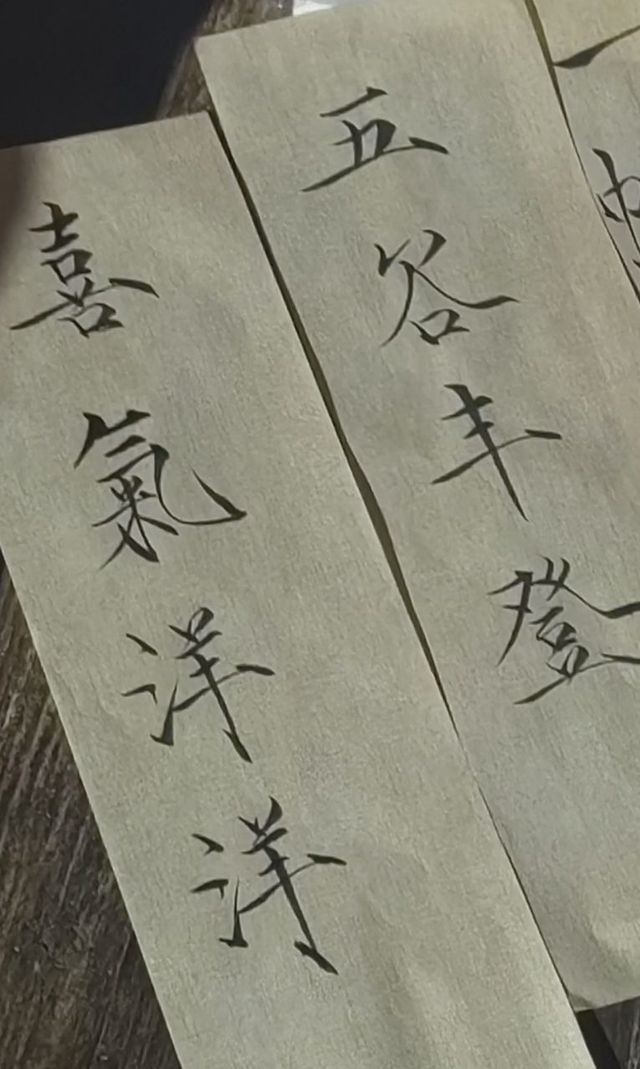 五谷丰登
喜氣洋洋